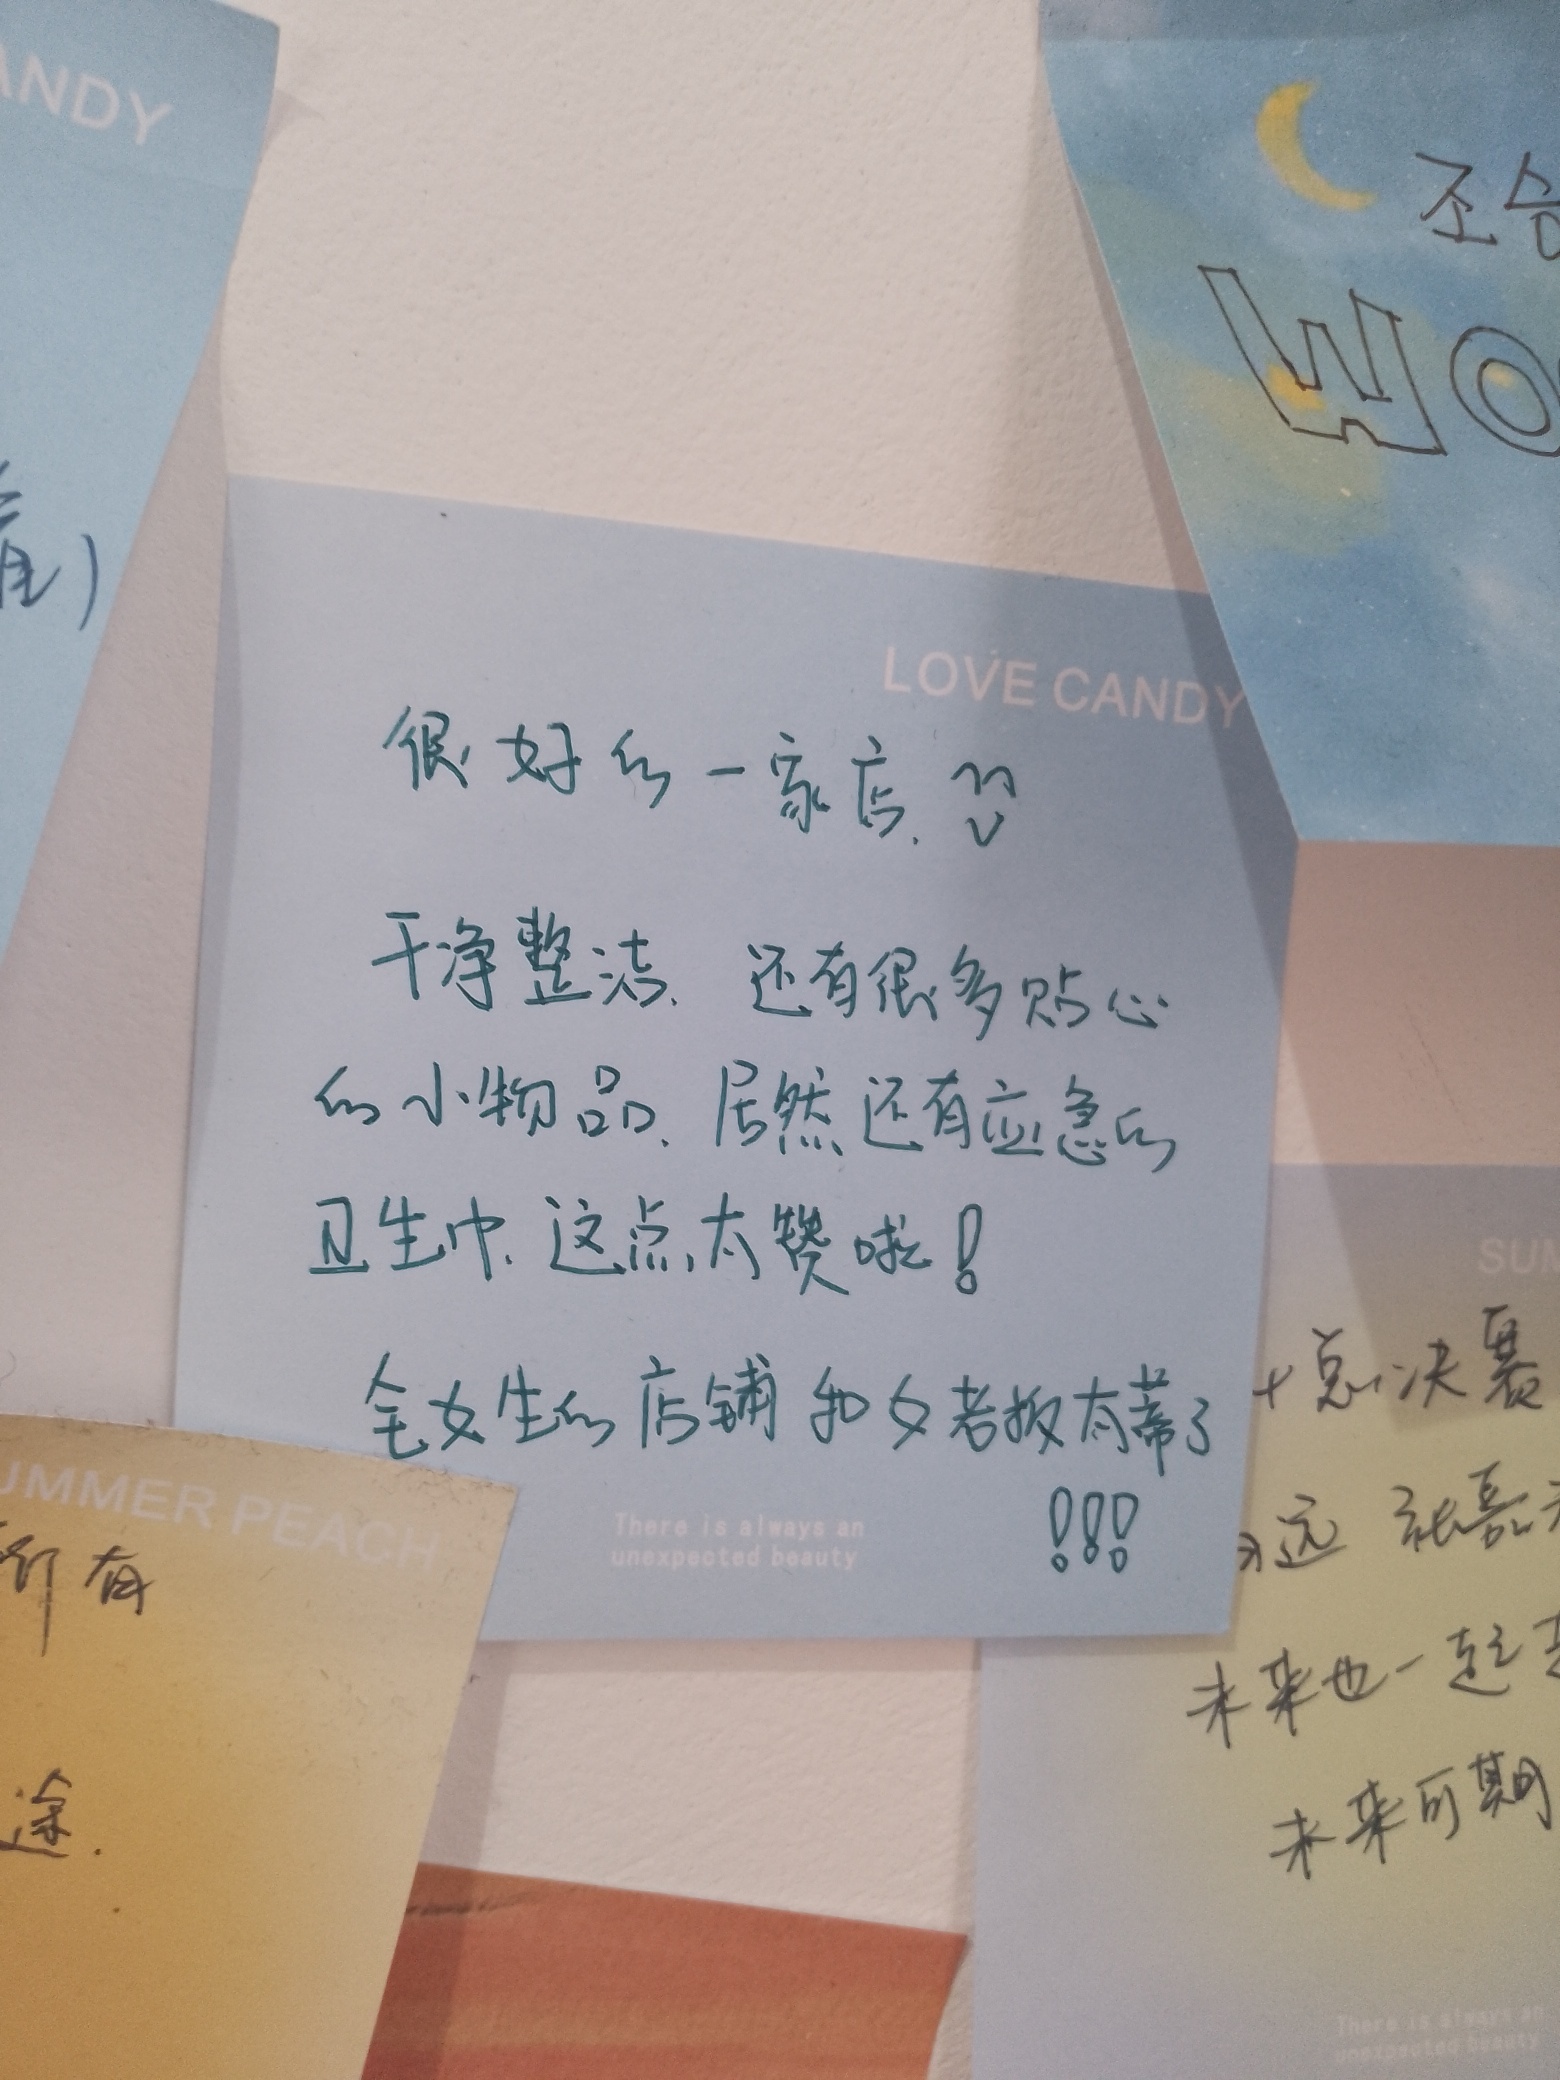 ANDY
LOVE CANDY
很好的一家店.
干净整洁、还有很多贴心
的小物品、居然还有应急的
卫生巾、这点太赞啦！
全女生的店铺和女老板太蒂了
!!!
There is always an
unexpected beauty
조승
WO
UMMER PEACH
所有
途.
SUM
总决赛
永远
未来也一起
未来可期
There is always an
unexpected beauty